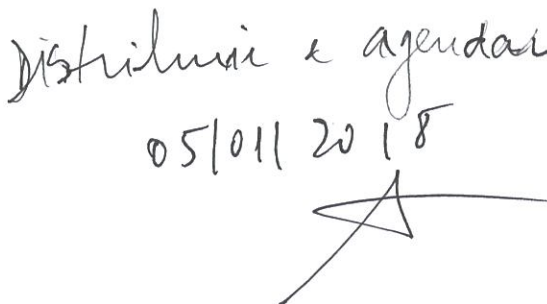 Distribuir e agendar
05/01/2018